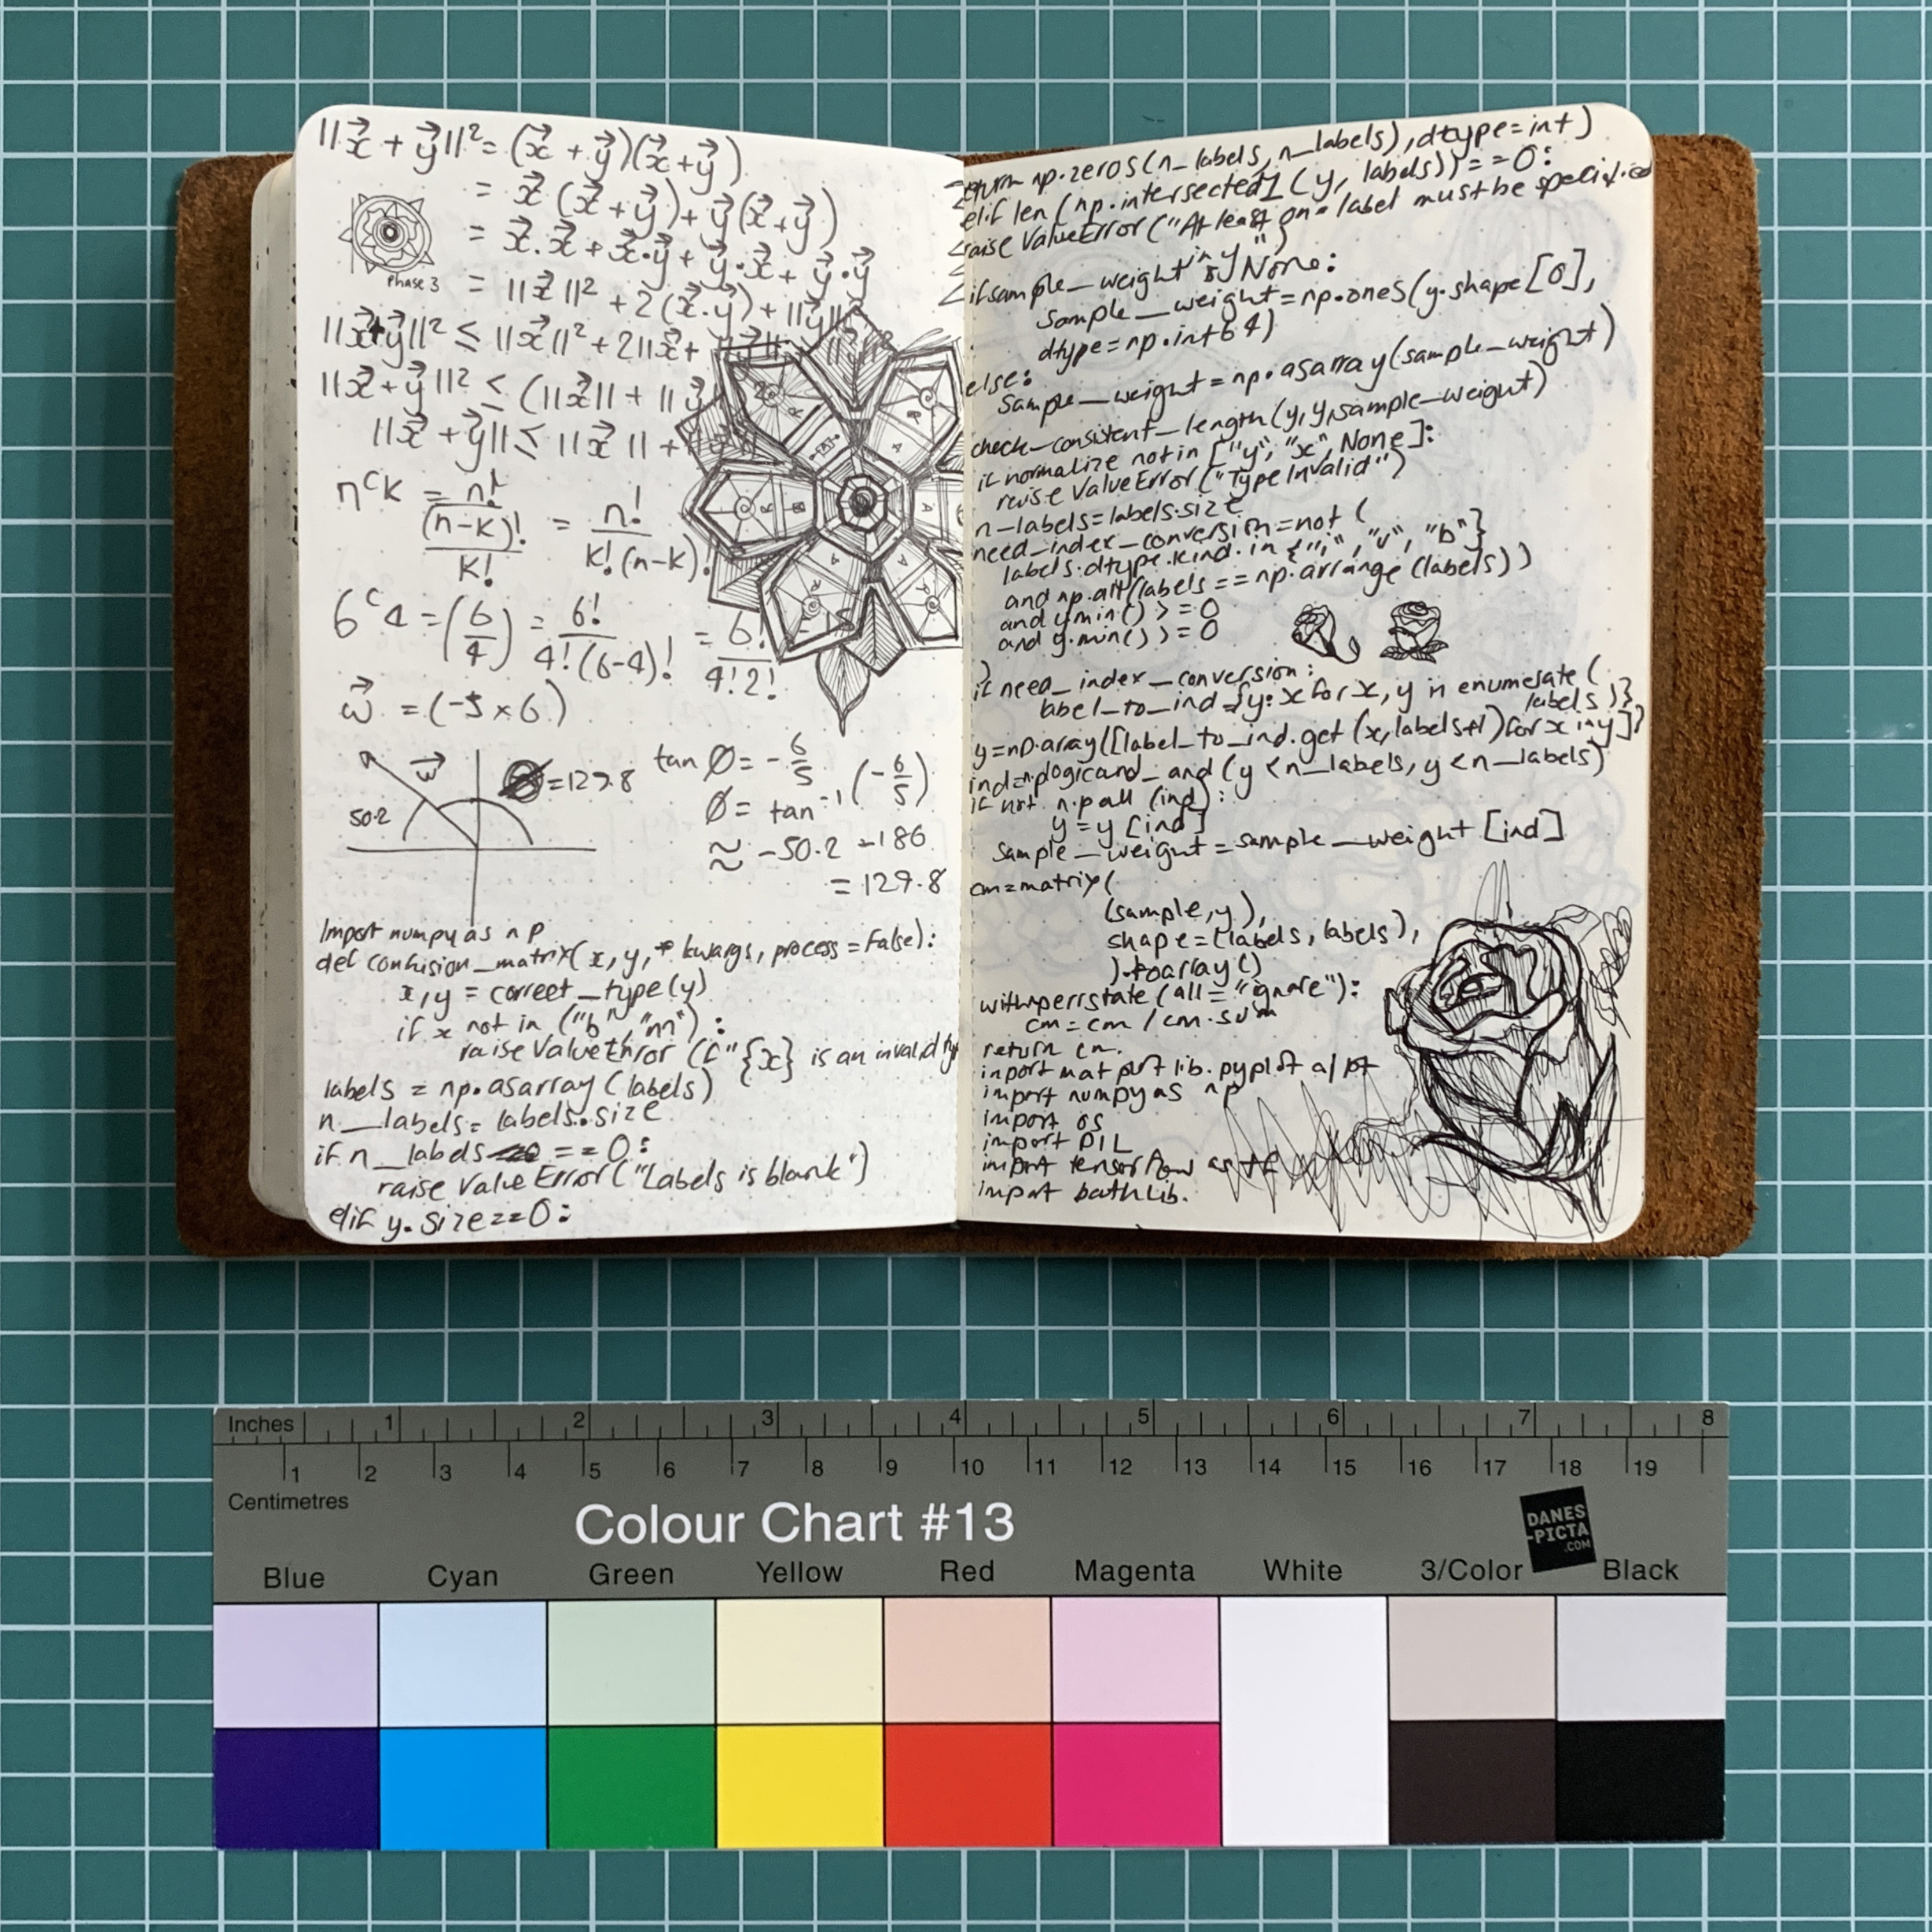 ||x⃗ + y⃗||² = (x⃗ + y⃗)(x⃗ + y⃗)
= x⃗ (x⃗ + y⃗) + y⃗ (x⃗ + y⃗)
= x⃗ . x⃗ + x⃗ · y⃗ + y⃗ · x⃗ + y⃗ · y⃗
Phase 3
= ||x⃗||² + 2(x⃗ . y⃗) + ||y⃗||
||x⃗+y⃗||² ≤ ||x⃗||² + 2||x⃗+
||x⃗ + y⃗||² ≤ (||x⃗|| + ||y⃗
||x⃗ + y⃗|| ≤ ||x⃗|| +
nCk = n!/(n-k)!/k! = n!/k!(n-k)!
6C4 = (6/4) = 6!/4!(6-4)! = 6!/4!2! = 15
w⃗ = (-5 × 6)
w⃗
50.2
=129.8
tan Ø = - 6/5
Ø = tan⁻¹ (- 6/5)
≈ -50.2 -186
= 129.8
Import numpy as np
def confusion_matrix(x, y, * kwargs, process = False):
x, y = correct_type(y)
if x not in ("b", "nn"):
raise ValueError (f"{x} is an invalid ty
labels = np.asarray (labels)
n__labels = labels.size
if n__labels == 0:
raise ValueError ("Labels is blank")
elif y. size==0:
return np.zeros(n_labels, n_labels), dtype=int)
elif len (np.intersected1 (y, labels)) == 0:
raise ValueError ("At least one label must be specified
in y")
if sample_weight is None:
sample__weight = np.ones (y.shape [0],
dtype = np.int64)
else:
sample__weight = np.asarray (sample_weight)
check_consistent_length (y, y, sample-weight)
if normalize not in ["y", "x", None]:
raise ValueError ("Type Invalid")
n-labels=labels.size
need_index_conversion = not (
labels.dtype.kind.in {"i", "u", "b"}
and np.all (labels == np.arrange (labels))
and y min() >= 0
and y.min() >= 0
)
if need_index_conversion:
label_to_ind = {y: x for x, y in enumerate (
labels )}
y=np.array([label_to_ind.get (x, labels+1) for x in y])
ind=np.logicand_and (y < n__labels, y < n__labels)
if not n.p all (ind):
y = y [ind]
sample__weight = sample__weight [ind]
cm=matrix (
(sample, y),
shape = (labels, labels),
).toarray ()
with nperrstate (all = "ignore"):
cm = cm / cm.sum
return cm.
import mat plot lib. pyplot a/ pt
import numpy as np
import os
import PIL
import tensorflow as tf
import pathlib.
Inches 1 2 3 4 5 6 7 8
1 2 3 4 5 6 7 8 9 10 11 12 13 14 15 16 17 18 19
Centimetres
Colour Chart #13
DANES
-PICTA
.COM
Blue Cyan Green Yellow Red Magenta White 3/Color Black